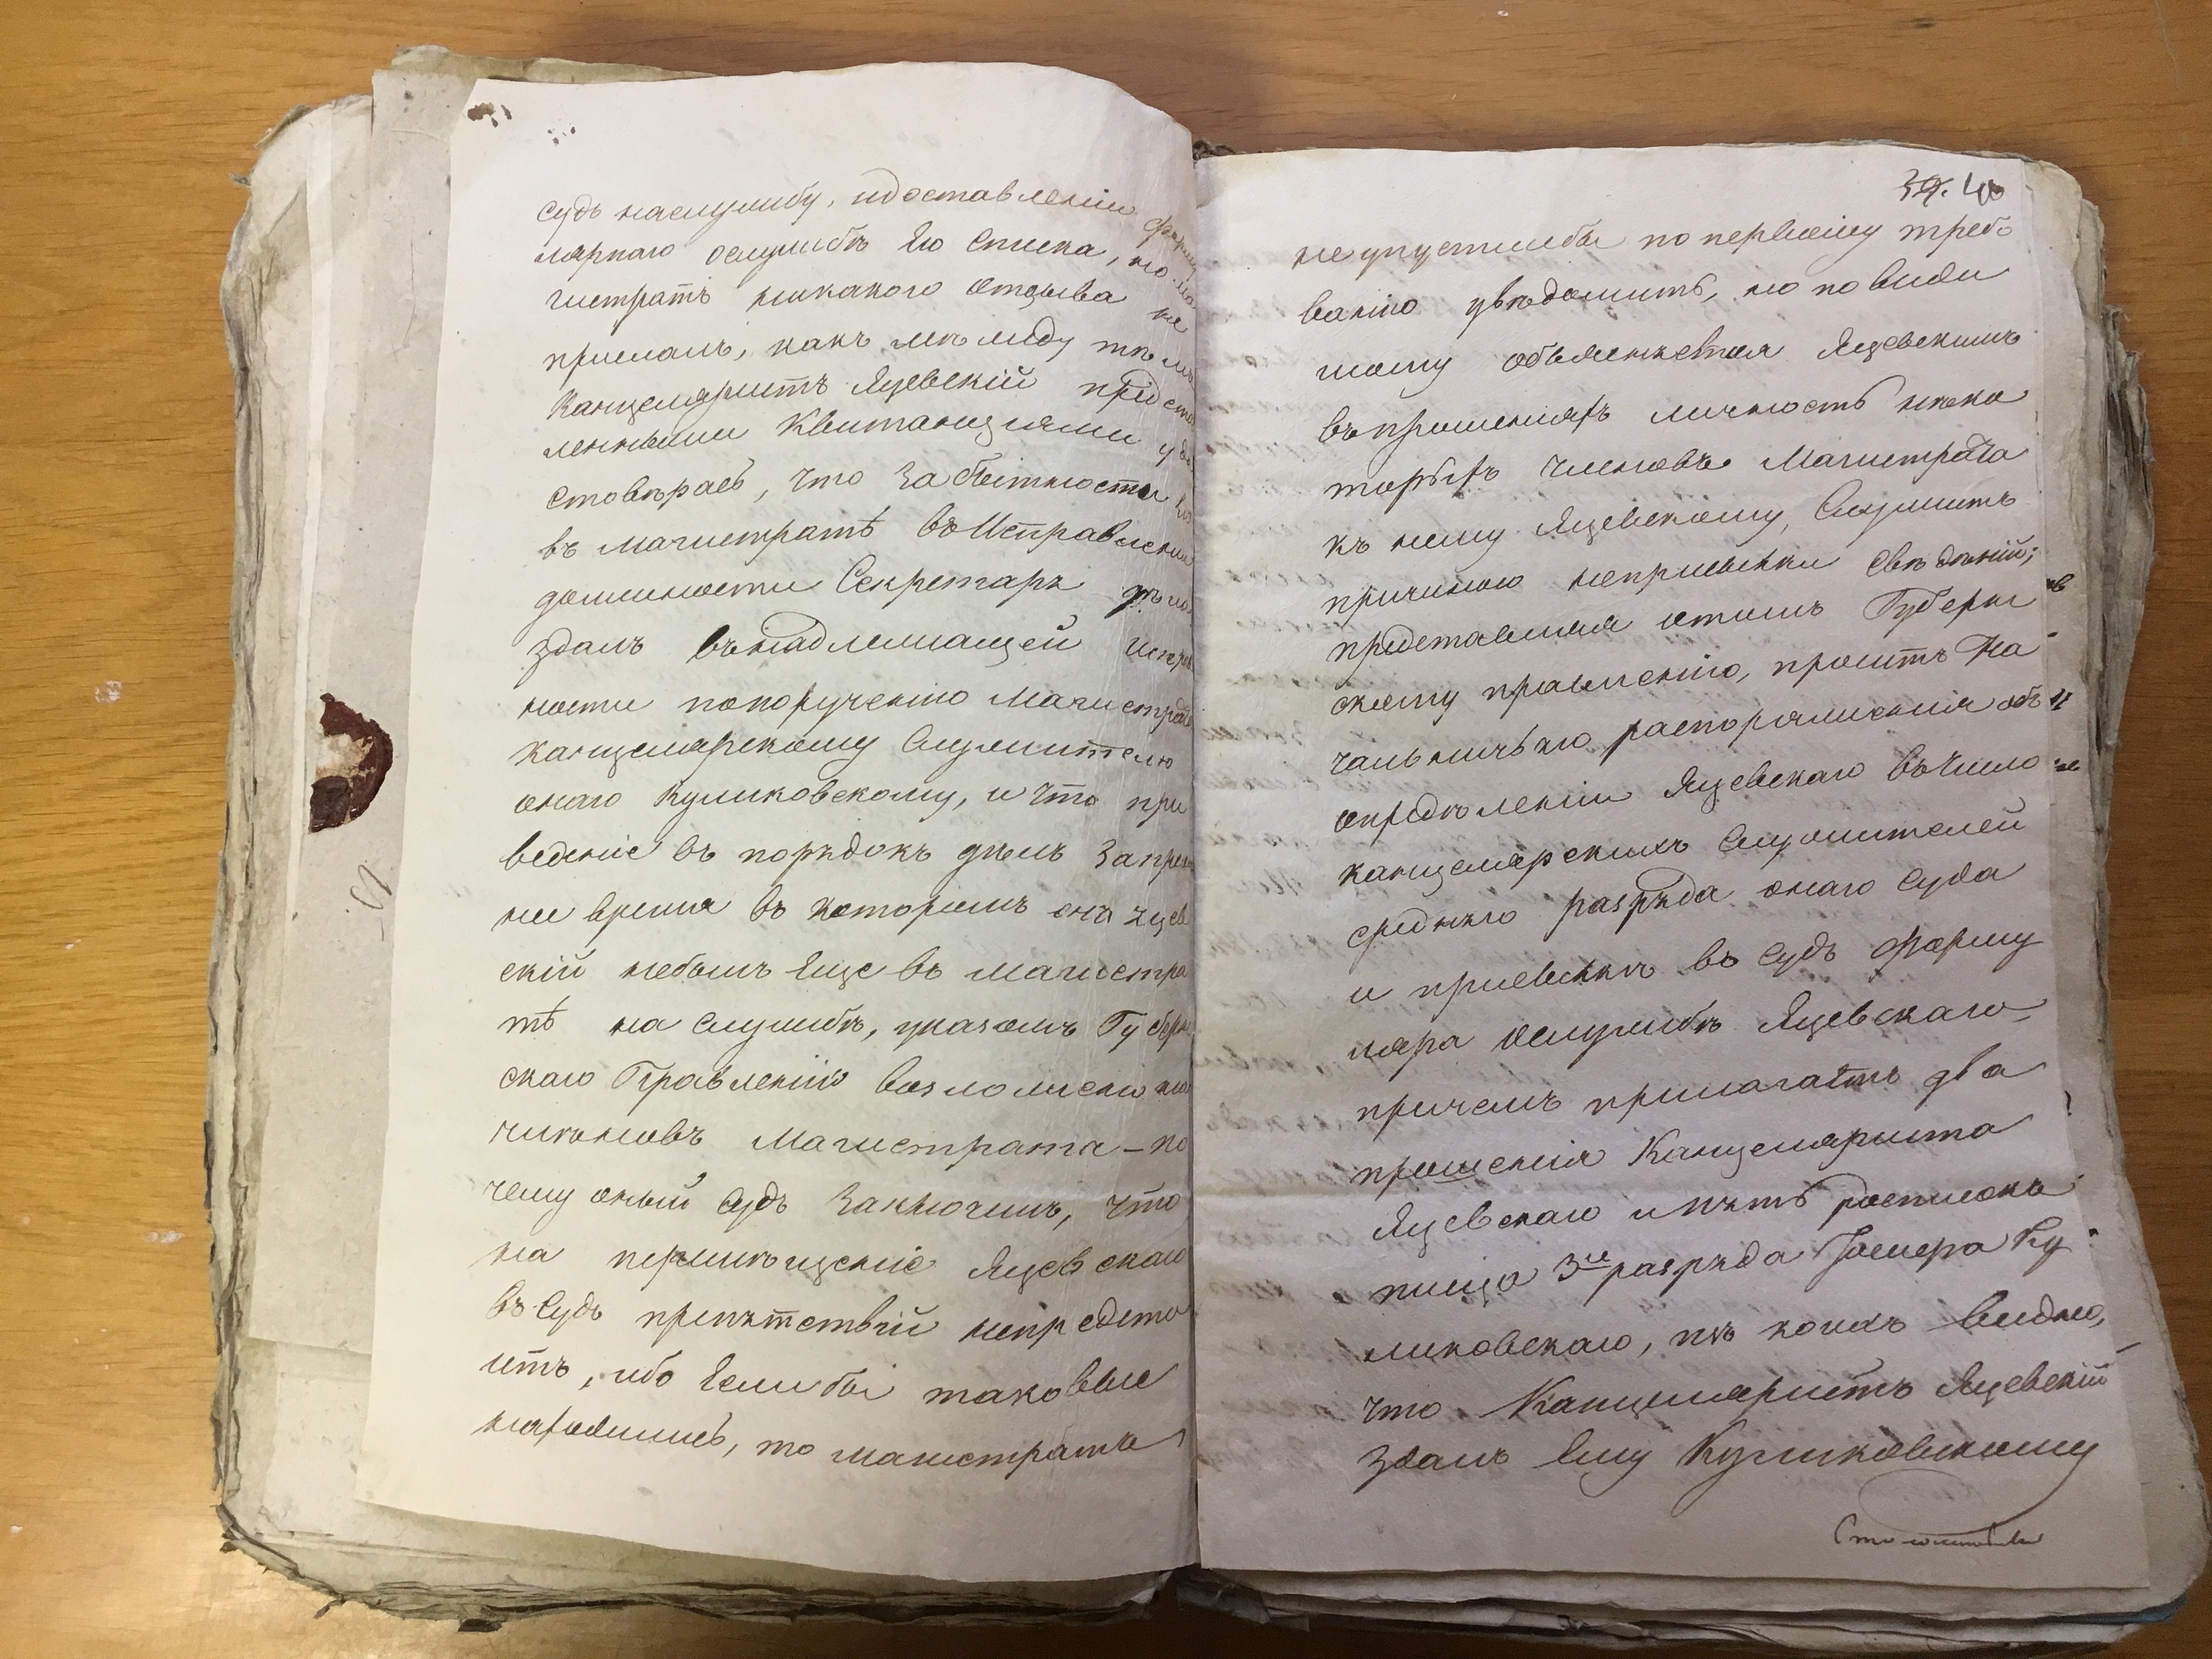 судъ наслужбу, идоставленіи форму
лярнаго ослужбѣ Его списка, но Ма
гистратъ никакого отзыва не
прислалъ, какъ между тѣмъ
Канцеляристъ Яцевскій предста
ленными Квитанціями удо
стовѣраетъ, что за бытности его
въ магистратѣ въ Исправленіи
должности Секретаря дѣла
здалъ въ надлежащей исправ
ности попорученію Магистрата
канцелярскому Служителю
онаго Куликовскому, и что при
веденіе въ порядокъ дѣлъ За преж
нее время въ которомъ онъ Яцев
скій небылъ Еще въ магистра
тѣ на службѣ, указомъ Губерн
скаго Правленія возложено на
членовъ Магистрата – по
чему оный Судъ Заключилъ, что
на перемѣщеніе Яцевскаго
въ Судъ препятствій непредсто
итъ, ибо Если бы таковые
находились, то магистратъ
39. 40
не упустилъбы по первому требо
ванію увѣдомить, но по види
мому объясняемая Яцевскимъ
въ прошеніяхъ личность нѣко
торыхъ членовъ Магистрата
къ нему Яцевскому, Служитъ
причиною неприсылки Свѣдѣній;
представляя отомъ Губерн
скому правленію, проситъ На
чальничьяго распоряженія объ
опредѣленіи Яцевскаго въ число
канцелярскихъ Служителей
средняго разряда онаго Суда
и присылкѣ въ Судъ форму
ляра ослужбѣ Яцевскаго,
причемъ прилагаетъ два
прошенія Канцеляриста
Яцевскаго и пять росписокъ
писца 3го разряда Ку
ликовскаго, изъ коихъ видно,
что Канцеляристъ Яцевскій
здалъ Ему Куликовскому